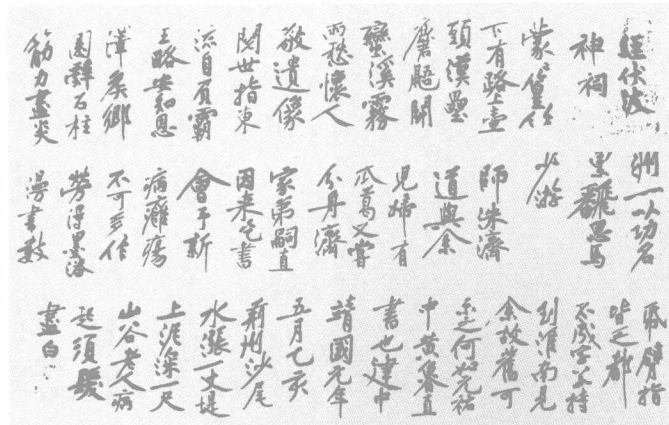 經伏波
神祠
蒙蒙篁竹
下有路上壺
頭漢壘
麏鼯鬭
蠻溪霧
雨愁懷人
敬遺像
閱世指東
流自負霸
王略安知恩
澤侯鄉
園辭石柱
筋力盡炎
洲一以功名
累翻思馬
少游
師洙濟
道與余
兒婦有
瓜葛又嘗
分舟濟
家弟嗣直
因來乞書
會予新
病癰瘍
不可多作
勞得墨瀋
漫書數
紙臂指
皆乏都
不成字若持
到淮南見
余故舊可
示之何如元祐
中黃魯直
書也建中
靖國元年
五月乙亥
荊州沙尾
水漲一丈堤
上泥深一尺
山谷老人病
起須髮
盡白